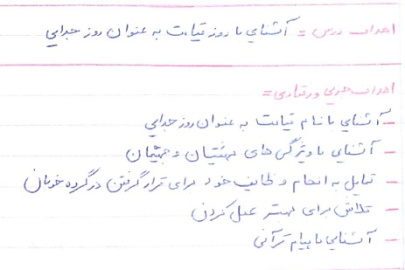 اهداف درس = آشنایی با روز قیامت به عنوان روز جدایی
اهداف جزیی و رفتاری =
- آشنایی با نام قیامت به عنوان روز جدایی
- آشنایی با ویژگی های بهشتیان و جهنمیان
- تمایل به انجام وظایف خود برای قرار گرفتن در گروه خوبان
- تلاش برای بهتر عمل کردن
- آشنایی با پیام قرآنی